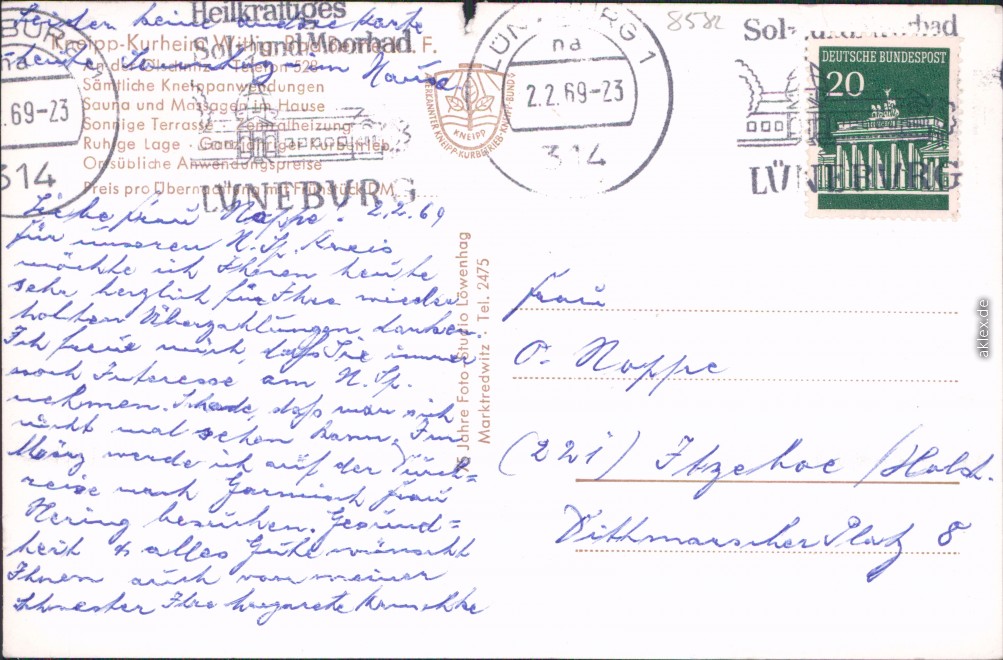 Leider keine andere Karte
heute am Sonntag im Hause
Heilkräftiges
Sol- und Moorbad
LÜNEBURG
LÜNEBURG 1
na
2.2.69-23
314
8582
Sol- und Moorbad
LÜNEBURG
DEUTSCHE BUNDESPOST
20
Kneipp-Kurheim Wittig Bad Berneck i. F.
An der Ölschnitz · Telefon 528
Sämtliche Kneippanwendungen
Sauna und Massagen im Hause
Sonnige Terrasse · Zentralheizung
Ruhige Lage · Ganzjähriger Kurbetrieb
Ortsübliche Anwendungspreise
Preis pro Übernachtung mit Frühstück DM
ANERKANNTER KNEIPP-KURBETRIEB KNEIPP-BUND
KNEIPP
Liebe Frau Noppe! 2.2.69
für unseren N. Sp. Kreis
möchte ich Ihnen heute
sehr herzlich für Ihre wieder
holten Überzahlungen danken.
Ich freue mich, daß Sie immer
noch Interesse am N. Sp.
nehmen. Schade, daß man sich
nicht mal sehen kann. Im
März werde ich auf der Rück=
reise nach Garmisch Frau
Hering besuchen. Gesund=
heit & alles Gute wünscht
Ihnen auch von meiner
Schwester Ihre Margarete
75 Jahre Foto-Studio Löwenhag
Marktredwitz · Tel. 2475
Frau
O. Noppe
(221) Itzehoe /Holst.
Dithmarscher Platz 8
aklex.de